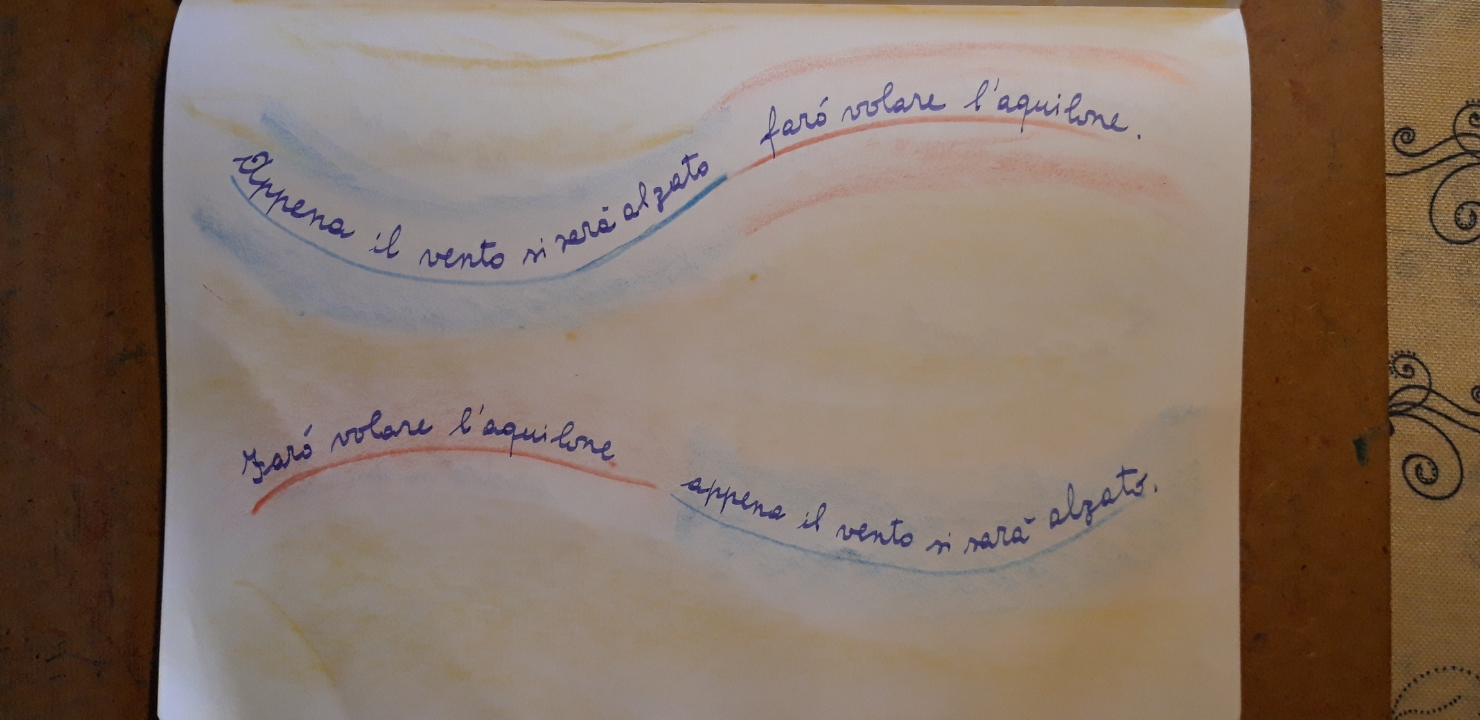 Appena il vento si sarà alzato faró volare l'aquilone.
Faró volare l'aquilone appena il vento si sarà alzato.